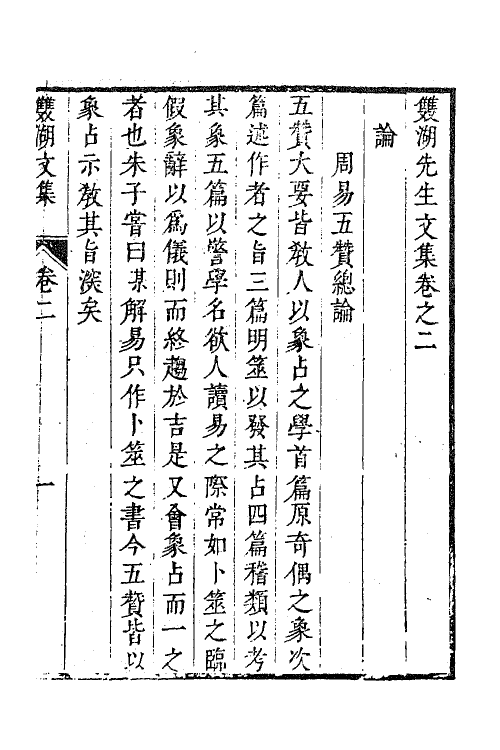 雙湖先生文集卷之二
論
周易五贊總論
五贊大要皆敎人以象占之學首篇原奇偶之象次
篇述作者之旨三篇明筮以發其占四篇稽類以考
其象五篇以警學名欲人讀易之際常如卜筮之臨
假象辭以爲儀則而終趨於吉是又會象占而一之
者也朱子嘗曰某解易只作卜筮之書今五贊皆以
象占示敎其旨深矣
雙湖文集 卷二 一